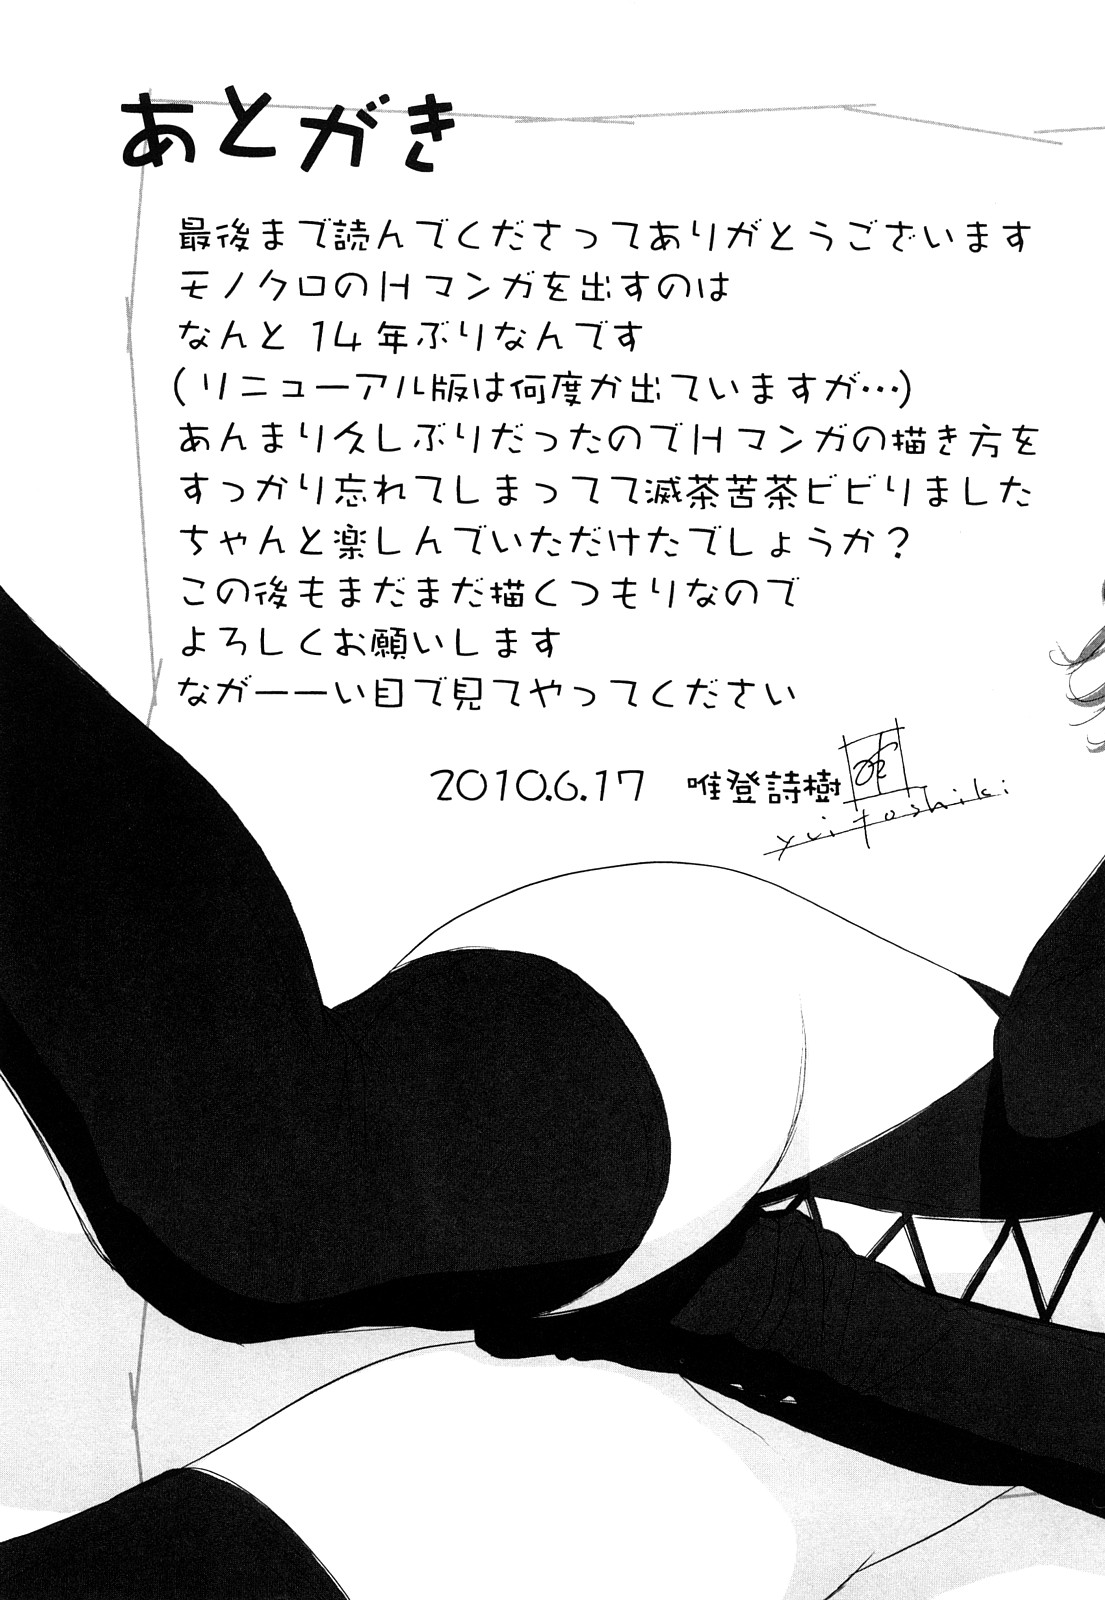 あとがき
最後まで読んでくださってありがとうございます
モノクロのHマンガを出すのは
なんと14年ぶりなんです
(リニューアル版は何度か出ていますが…)
あんまり久しぶりだったのでHマンガの描き方を
すっかり忘れてしまってて滅茶苦茶ビビりました
ちゃんと楽しんでいただけたでしょうか?
この後もまだまだ描くつもりなので
よろしくお願いします
ながーーい目で見てやってください
2010.6.17 唯登詩樹
yuitoshiki